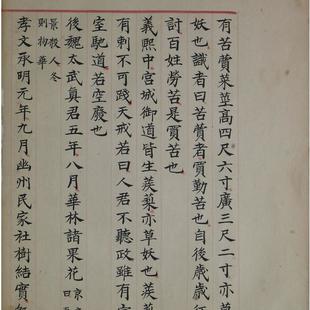 有苦蕒菜莖高四尺六寸廣三尺二寸亦草
妖也識者曰苦蕒者買勤苦也自後歲歲征
討百姓勞苦是買苦也
義熙中宮城御道皆生蒺蔾亦草妖也蒺蔾
有刺不可踐天戒若曰人君不聽政雖有宮
室馳道若空廢也
後魏太武真君五年八月華林諸果花
景殺人冬
則物華
孝文承明元年九月幽州民家社樹結實